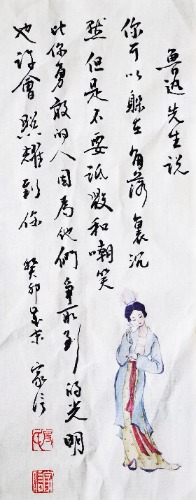 鲁迅先生说
你可以躲在角落裏沉
默但是不要詆毀和嘲笑
比你勇敢的人因爲他們争取到的光明
也許會照耀到你
癸卯